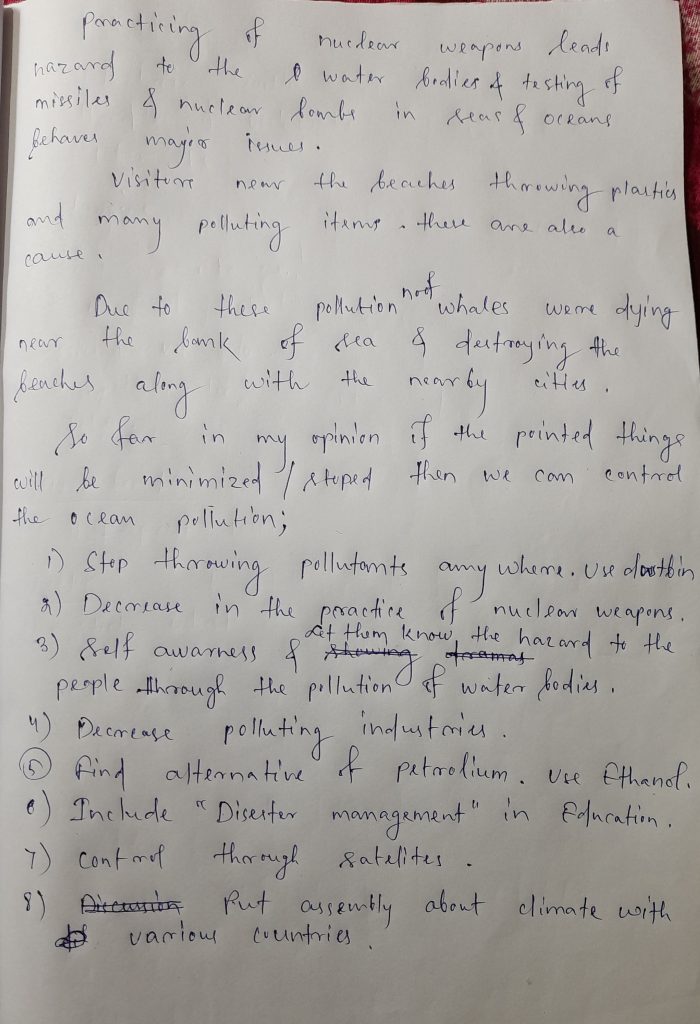 Practicing of nuclear weapons leads
hazard to the water bodies & testing of
missiles & nuclear bombs in seas & oceans
behaves major issues.
Visitors near the beaches throwing plastics
and many polluting items. these are also a
cause.
Due to these pollution whales were dying
near the bank of sea & destroying the
beaches along with the nearby cities.
So far in my opinion if the pointed things
will be minimized / stoped then we can control
the ocean pollution;
1) Stop throwing pollutants any where. Use dustbin
2) Decrease in the practice of nuclear weapons.
3) Self awarness & let them know the hazard to the
people through the pollution of water bodies.
4) Decrease polluting industries.
5) Find alternative of petrolium. Use Ethanol.
6) Include "Disester management" in Education.
7) Control through satelites.
8) Put assembly about climate with
various countries.